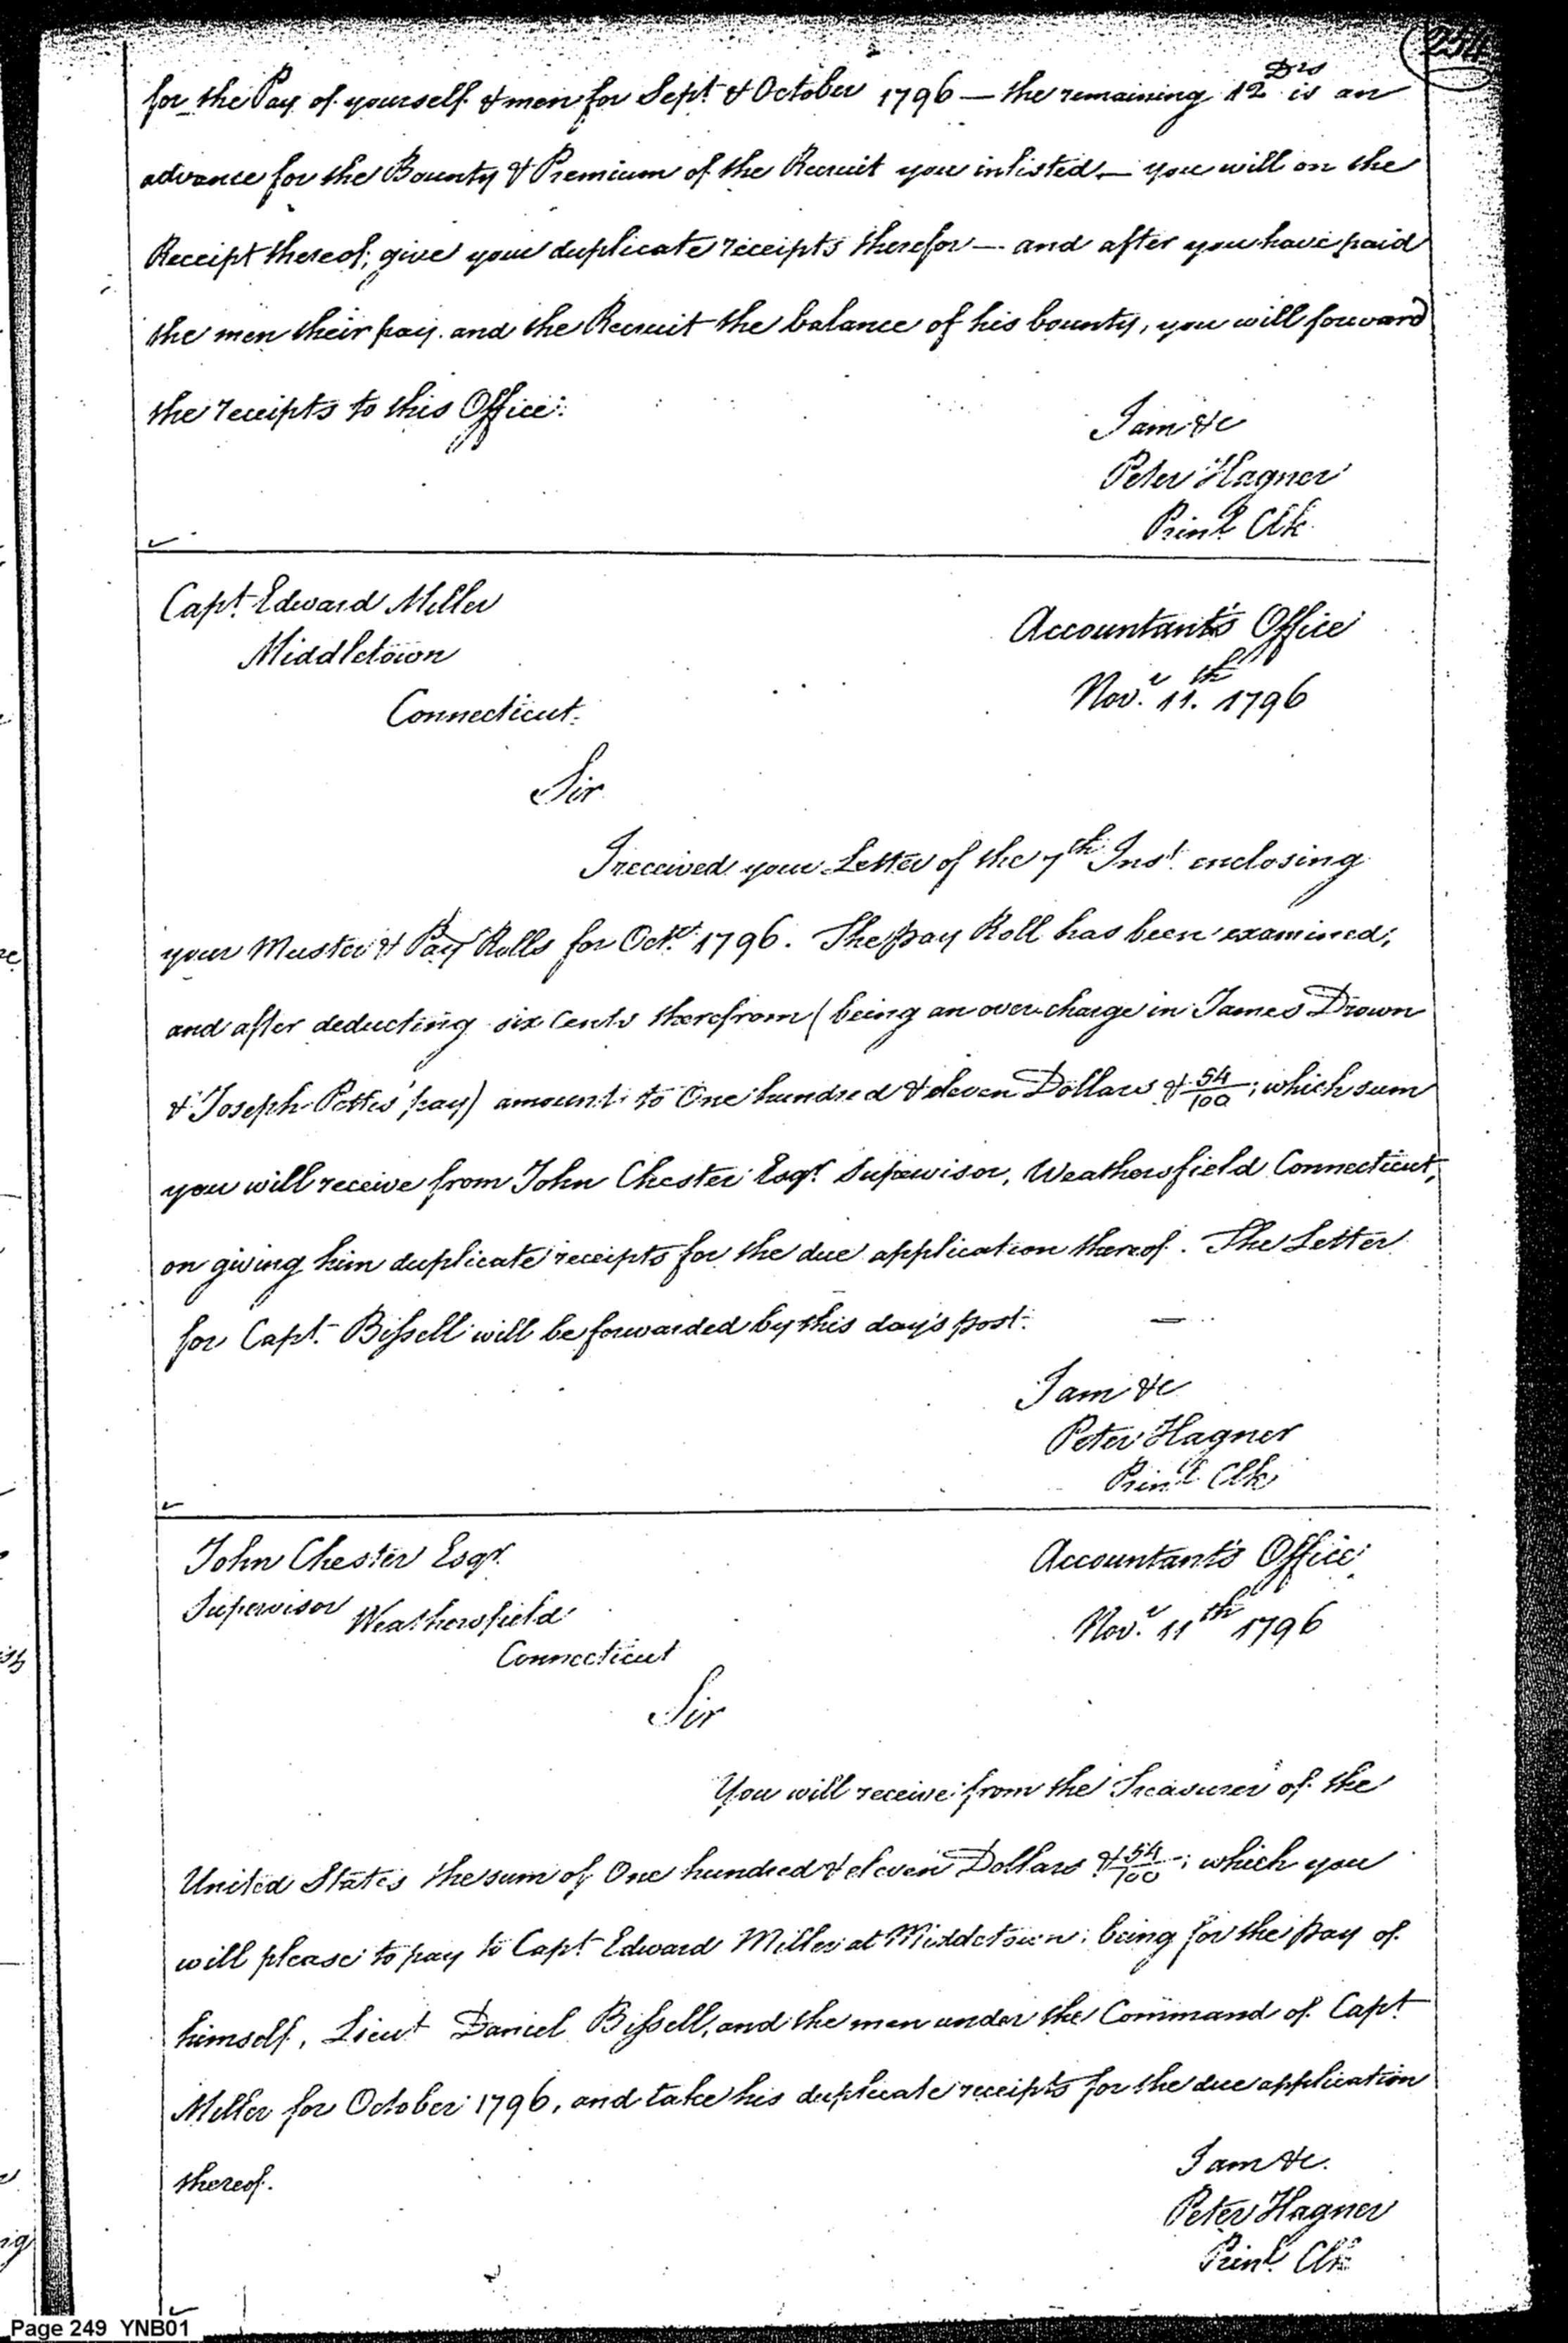 254
for the Pay of yourself & men for Sept & October 1796 — the remaining 12 Drs is an
advance for the Bounty & Premium of the Recruit you inlisted — you will on the
Receipt thereof, give your duplicate receipts therefor — and after you have paid
the men their pay and the Recruit the balance of his bounty, you will forward
the receipts to this Office.
I am &c
Peter Hagner
Prinl Clk
Capt Edward Miller
Middletown
Connecticut.
Accountant's Office
Novr 11th 1796
Sir
I received your Letter of the 7th Inst enclosing
your Muster & Pay Rolls for Octr 1796. The pay Roll has been examined;
and after deducting six Cents therefrom (being an overcharge in James Drown
& Joseph Potter's pay) amounts to One hundred & eleven Dollars & 54/100; which sum
you will receive from John Chester Esqr Supervisor, Weathersfield Connecticut,
on giving him duplicate receipts for the due application thereof. The Letter
for Capt Bissell will be forwarded by this day's post. —
I am &c
Peter Hagner
Prinl Clk
John Chester Esqr
Supervisor Weathersfield
Connecticut
Accountant's Office
Novr 11th 1796
Sir
You will receive from the Treasurer of the
United States the sum of One hundred & eleven Dollars & 54/100; which you
will please to pay to Capt Edward Miller at Middetown; being for the pay of
himself, Lieut Daniel Bissell, and the men under the Command of Capt
Miller for October 1796, and take his duplicate receipts for the due application
thereof.
I am &c.
Peter Hagner
Prinl Clk
Page 249 YNB01